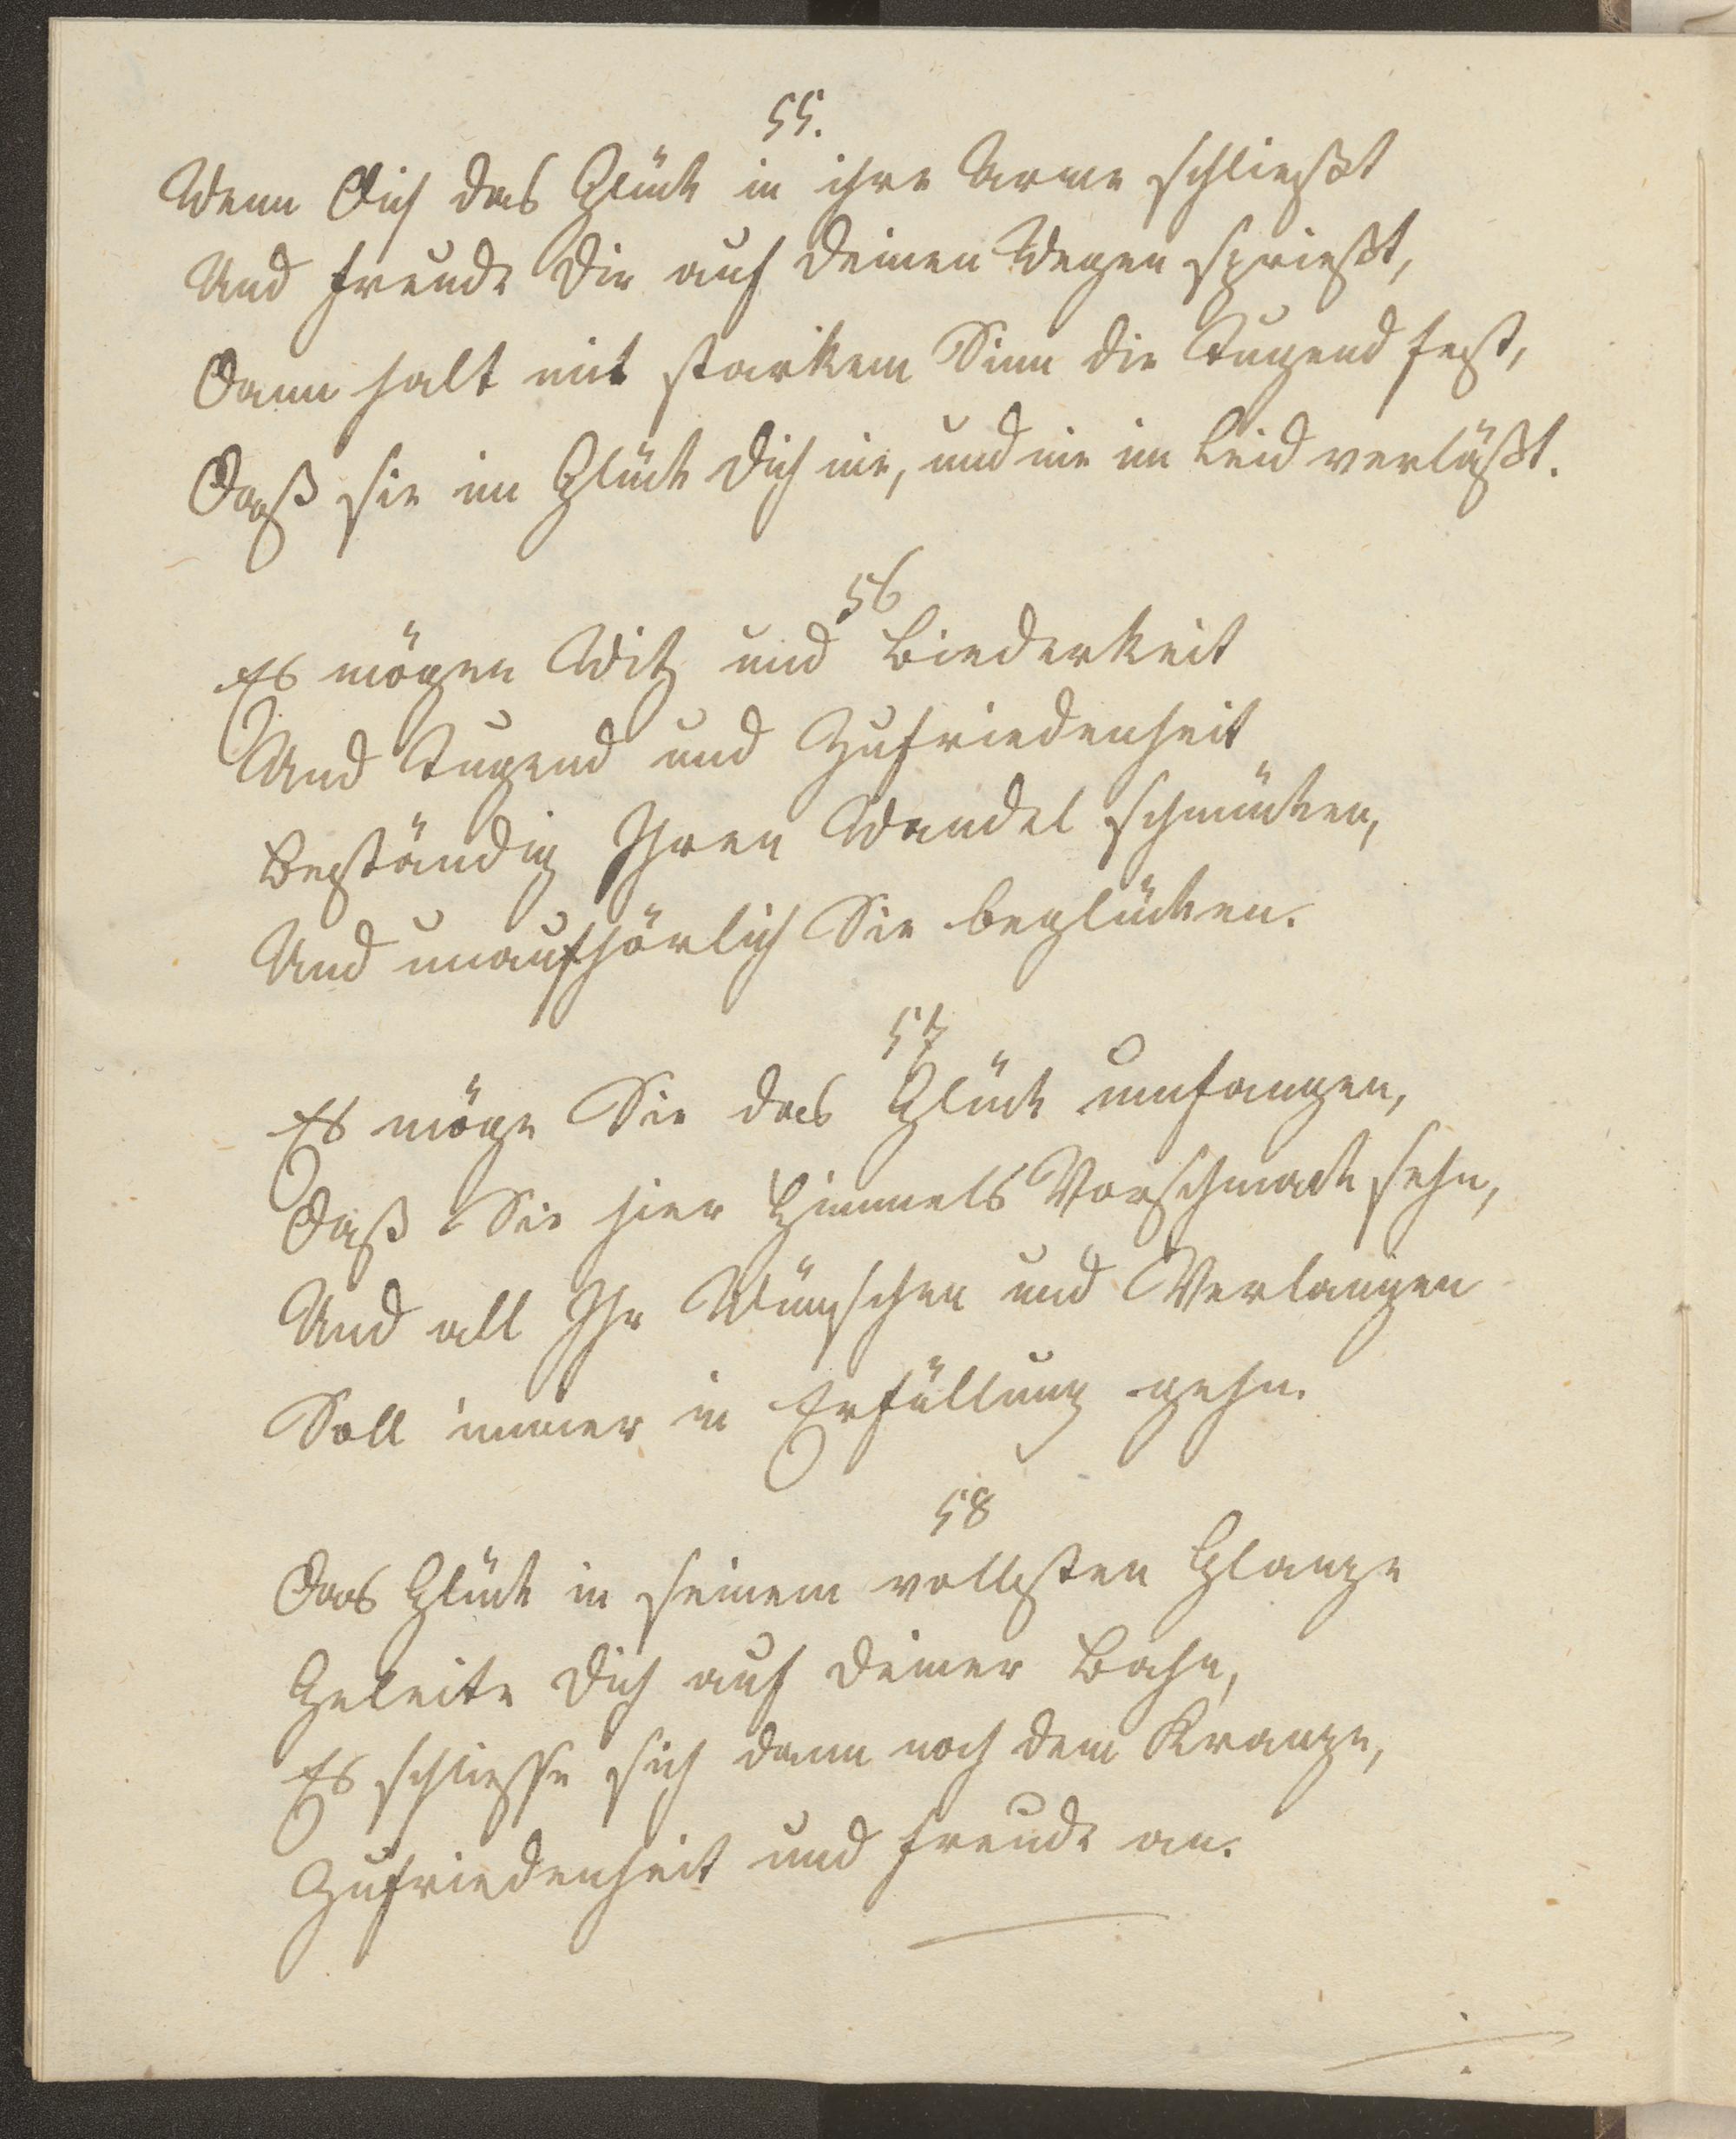 55.
Wenn Dich das Glück in ihre Arme schließt
Und Freude Dir auf deinen Wegen sprießt,
Dann halt mit starkem Sinn die Tugend fest,
Daß sie im Glück dich nie, und nie im Leid verläßt.
56
Es mögen Witz und Biederkeit
Und Tugend und Zufriedenheit
Beständig Ihren Wandel schmücken,
Und unaufhörlich Sie beglücken.
57
Es möge Sie das Glück umfangen,
Daß Sie hier Himmels Vorschmack sehn,
Und all Ihr Wünschen und Verlangen
Soll immer in Erfüllung gehn.
58
Das Glück in seinem vollsten Glanze
Geleite dich auf deiner Bahn,
Es schliesse sich dann noch dem Kranze,
Zufriedenheit und Freude an.